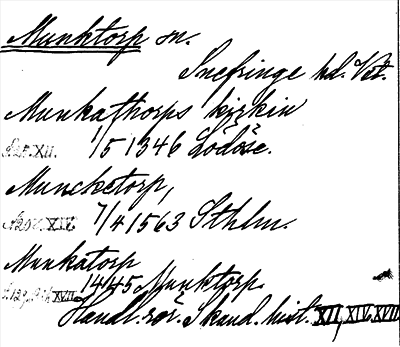 Munktorp sn.
Snefringe hd. Vst.
Munkathorps kirkiu
XII. 1/5 1346 Lödöse.
Muncketorp,
XIV. 7/4 1563 Sthlm.
Munkatorp
XVII. 1445 Munktorp.
Handl. rör. Skand. hist. XII, XIV, XVII